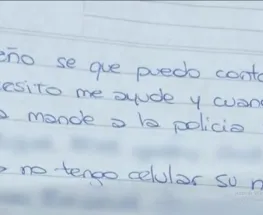 eño se que puedo conta
esito me ayude y cuan
mande a la policia
no tengo celular su n